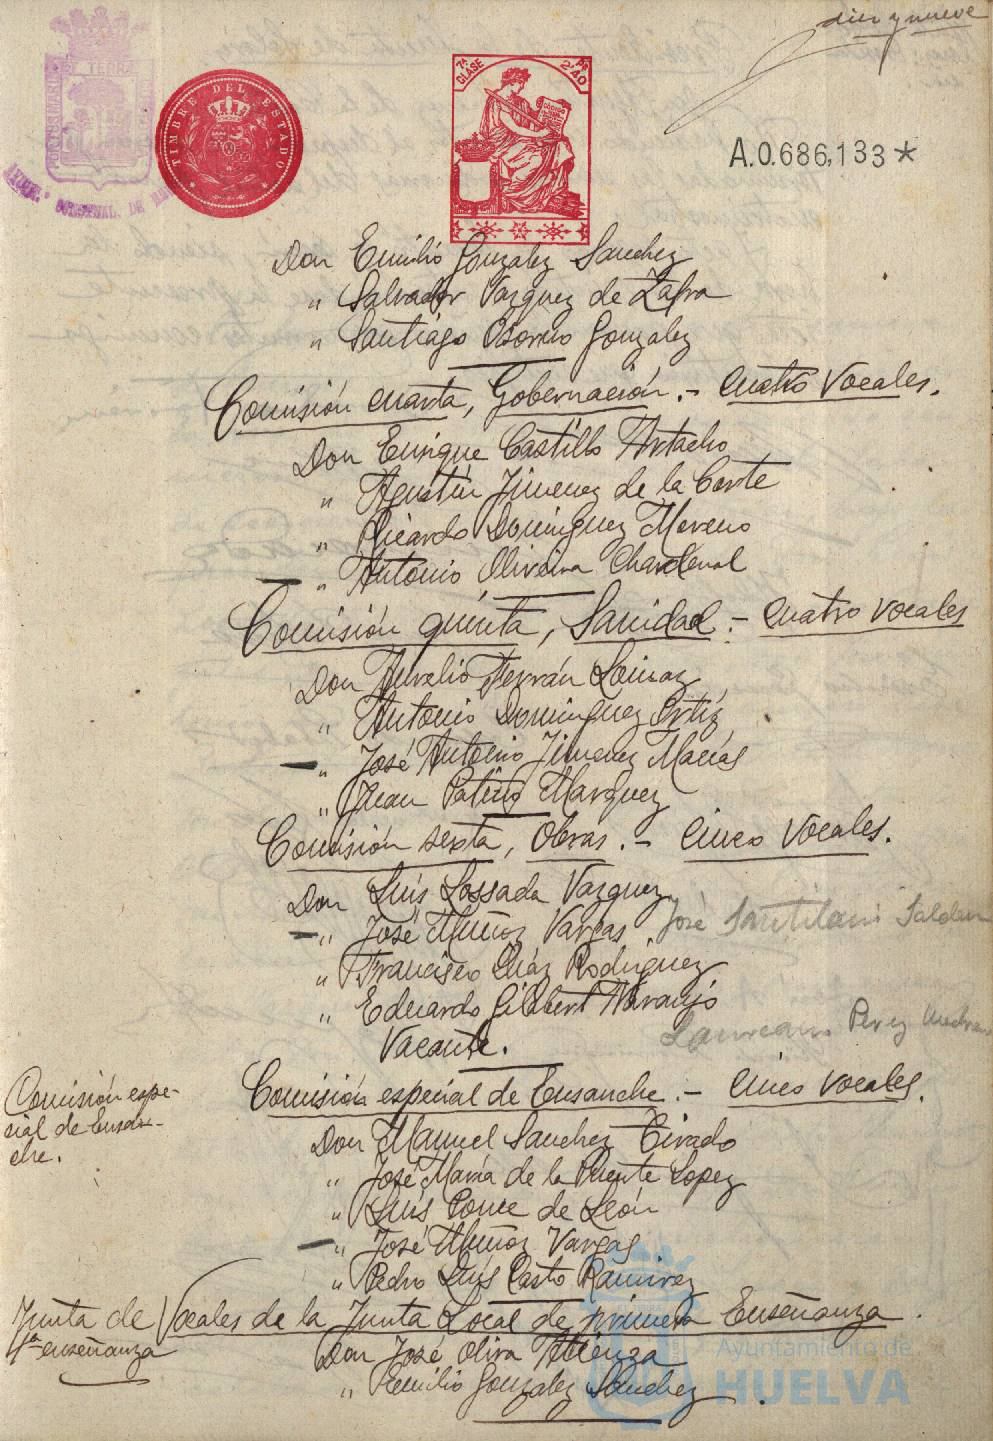 diez y nueve
TIMBRE DEL ESTADO
7ª CLASE
PS 2'40
A.0.686,133*
Don Emilio Gonzalez Sanchez
" Salvador Vazquez de Zafra
" Santiago Osorno Gonzalez
Comisión cuarta, Gobernación.- Cuatro Vocales.
Don Enrique Castillo Artacho
" Agustín Jimenez de la Corte
" Ricardo Dominguez Moreno
" Antonio Oliveira Chardenal
Comisión quinta, Sanidad.- Cuatro vocales
Don Aurelio Terrán Loinaz
" Antonio Dominguez Ortiz
" José Antonio Jimenez Macías
" Juan Patiño Marquez
Comisión sexta, Obras.- Cinco Vocales.
Don Luís Lossada Vazquez
" José Muñoz Vargas José Santilani
" Francisco Díaz Rodriguez
" Eduardo Gibbert Naranjo
Vacante. Laureano Perez
Comisión espe-
cial de Ensan-
che.
Comisión especial de Ensanche.- Cinco vocales.
Don Manuel Sanchez Tirado
" José María de la Puente Lopez
" Luís Ponce de León
" José Muñoz Vargas
" Pedro Luís Casto Ramirez
Junta de
1ª enseñanza
Vocales de la Junta Local de primera Enseñanza.
Don José Oliva Atienza
" Emilio Gonzalez Sanchez.
Ayuntamiento de
HUELVA